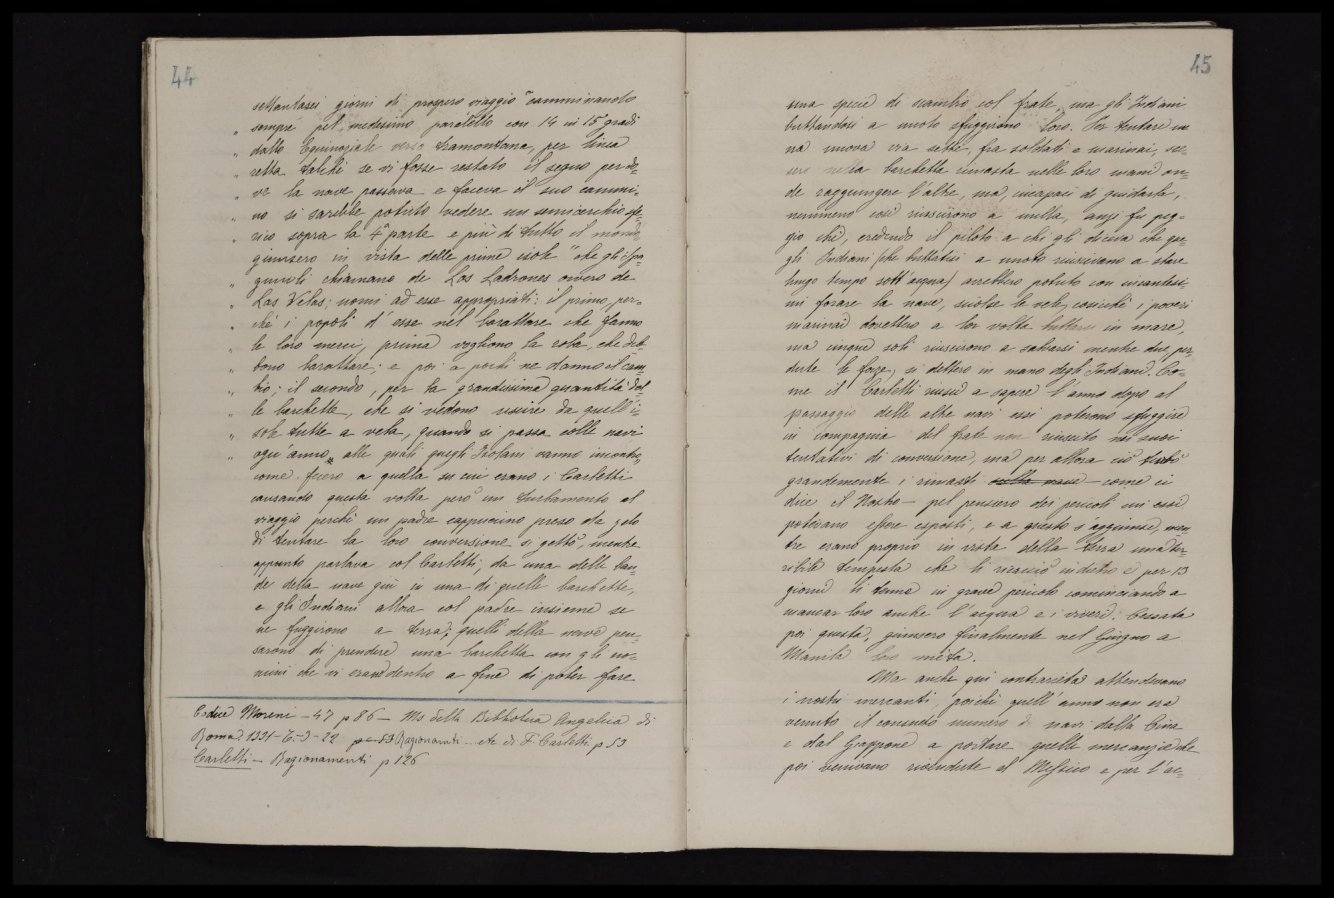 44
settantasei giorni di prospero viaggio "camminando
" sempre pel medesimo paralello con 14 in 15 gradi
" dallo Equinoziale verso tramontana, per linea
" retta talchè se vi fosse restato il segno per do=
" ve la nave passava e faceva il suo cammi=
" no si sarebbe potuto vedere un semicerchio sfe=
" rico sopra la 4ª parte e più di tutto il mondo
giunsero in vista delle prime isole "che gli Spa=
" gnuoli chiamano de Los Ladrones ovvero de
" Las Velas: nomi ad esse appropriati: il primo, per=
" chè i popoli d'esse nel barattare che fanno
" le loro merci, prima vogliono la roba, che deb=
" bono barattare; e poi a pochi ne danno il cam=
" bio; il secondo, per la grandissima quantità del=
" le barchette, che si vedono uscire da quell'i=
" sole tutte a vela, quando si passa colle navi
" ogni anno" alle quali quegli Isolani vanno incontro
come fecero a quella su cui erano i Carletti
causando questa volta però un turbamento al
viaggio perchè un padre cappuccino preso da zelo
di tentare la loro conversione si gettò, mentre
appunto parlava col Carletti, da una delle ban=
de della nave giù in una di quelle barchette,
e gli Indiani allora col padre insieme se
ne fuggirono a terra; quelli della nave pen=
sarono di prendere una barchetta con gli uo=
mini che vi erano dentro a fine di poter fare
Codice Moreni - 47 p 86 - Ms della Biblioteca Angelica di
Roma 1331 - T-3-22 p 53 Ragionamenti - etc di F. Carletti p 53
Carletti - Ragionamenti p 126
45
una specie di scambio col frate, ma gli Indiani
buttandosi a nuoto sfuggirono loro. Per tentare u=
na nuova via sette, fra soldati e marinai, sce=
sero nella barchetta rimasta nelle loro mani on=
de raggiungere l'altre, ma, incapaci di guidarla,
nemmeno così riuscirono a nulla, anzi fu peg=
gio chè, credendo il piloto a chi gli diceva che que=
gli Indiani (che buttatisi a nuoto riuscivano a stare
lungo tempo sott'acqua) avrebbero potuto con incantesi=
mi forare la nave, sciolse le vele, cosicchè i poveri
marinai dovettero a lor volta buttarsi in mare,
ma cinque soli riuscirono a salvarsi mentre due, per=
dute le forze, si dettero in mano degli Indiani. Co=
me il Carletti riuscì a sapere l'anno dopo al
passaggio delle altre navi essi poterono sfuggire
in compagnia del frate non riuscito nei suoi
tentativi di conversione, ma per allora ciò turbò
grandemente i rimasti sulla nave - come ci
dice il Nostro - pel pensiero dei pericoli cui essi
potevano essere esposti, e a questo s'aggiunse, men=
tre erano proprio in vista della terra una ter=
ribile tempesta che li ricacciò indietro e per 13
giorni li tenne in grave pericolo cominciando a
mancar loro anche l'acqua e i viveri. Cessata
poi questa, giunsero finalmente nel Giugno a
Manila loro mèta.
Ma anche qui contrarietà attendevano
i nostri mercanti, poichè quell'anno non era
venuto il consueto numero di navi dalla Cina
e dal Giappone a portare quelle mercanzie che
poi venivano rivendute al Messico e per l'ac=